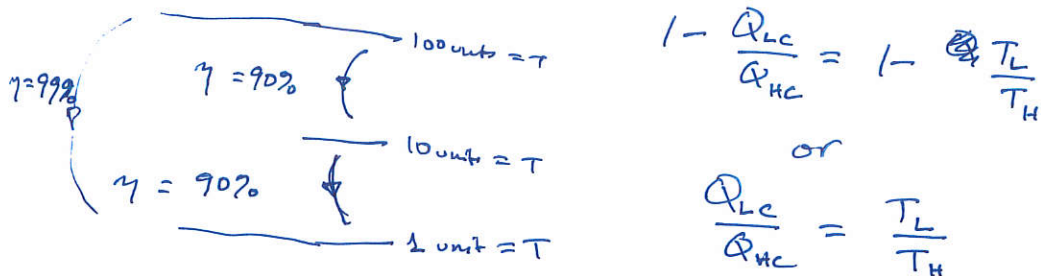 100 units = T
η = 99%
η = 90%
10 units = T
η = 90%
1 unit = T
1 - Q_LC / Q_HC = 1 - T_L / T_H
or
Q_LC / Q_HC = T_L / T_H